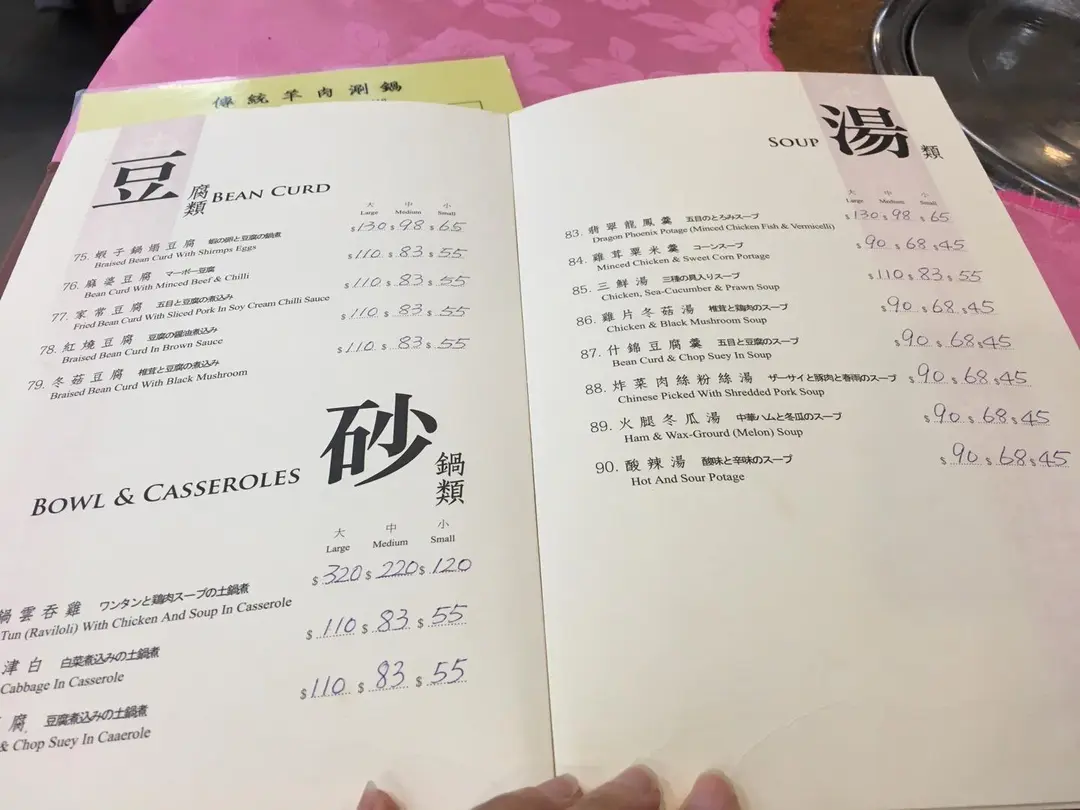 傳統羊肉涮鍋
豆腐類 BEAN CURD
大 中 小
Large Medium Small
75. 蝦子鍋焗豆腐 蝦の卵と豆腐の鍋煮 $130 $98 $65
Braised Bean Curd With Shirmps Eggs
76. 麻婆豆腐 マーボー豆腐 $110 $83 $55
Bean Curd With Minced Beef & Chilli
77. 家常豆腐 五目と豆腐の煮込み $110 $83 $55
Fried Bean Curd With Sliced Pork In Soy Cream Chilli Sauce
78. 紅燒豆腐 豆腐の醤油煮込み $110 $83 $55
Braised Bean Curd In Brown Sauce
79. 冬菇豆腐 椎茸と豆腐の煮込み $110 $83 $55
Braised Bean Curd With Black Mushroom
BOWL & CASSEROLES 砂鍋類
大 中 小
Large Medium Small
鍋雲吞雞 ワンタンと鶏肉スープの土鍋煮 $320 $220 $120
Tun (Raviloli) With Chicken And Soup In Casserole
津白 白菜煮込みの土鍋煮 $110 $83 $55
Cabbage In Casserole
腐 豆腐煮込みの土鍋煮 $110 $83 $55
& Chop Suey In Caaerole
SOUP 湯類
大 中 小
Large Medium Small
83. 翡翠龍鳳羹 五目のとろみスープ $130 $98 $65
Dragon Phoenix Potage (Minced Chicken Fish & Vermicelli)
84. 雞茸粟米羹 コーンスープ $90 $68 $45
Minced Chicken & Sweet Corn Portage
85. 三鮮湯 三種の具入りスープ $110 $83 $55
Chicken, Sea-Cucumber & Prawn Soup
86. 雞片冬菇湯 椎茸と鶏肉のスープ $90 $68 $45
Chicken & Black Mushroom Soup
87. 什錦豆腐羹 五目と豆腐のスープ $90 $68 $45
Bean Curd & Chop Suey In Soup
88. 炸菜肉絲粉絲湯 ザーサイと豚肉と春雨のスープ $90 $68 $45
Chinese Picked With Shredded Pork Soup
89. 火腿冬瓜湯 中華ハムと冬瓜のスープ $90 $68 $45
Ham & Wax-Grourd (Melon) Soup
90. 酸辣湯 酸味と辛味のスープ $90 $68 $45
Hot And Sour Potage